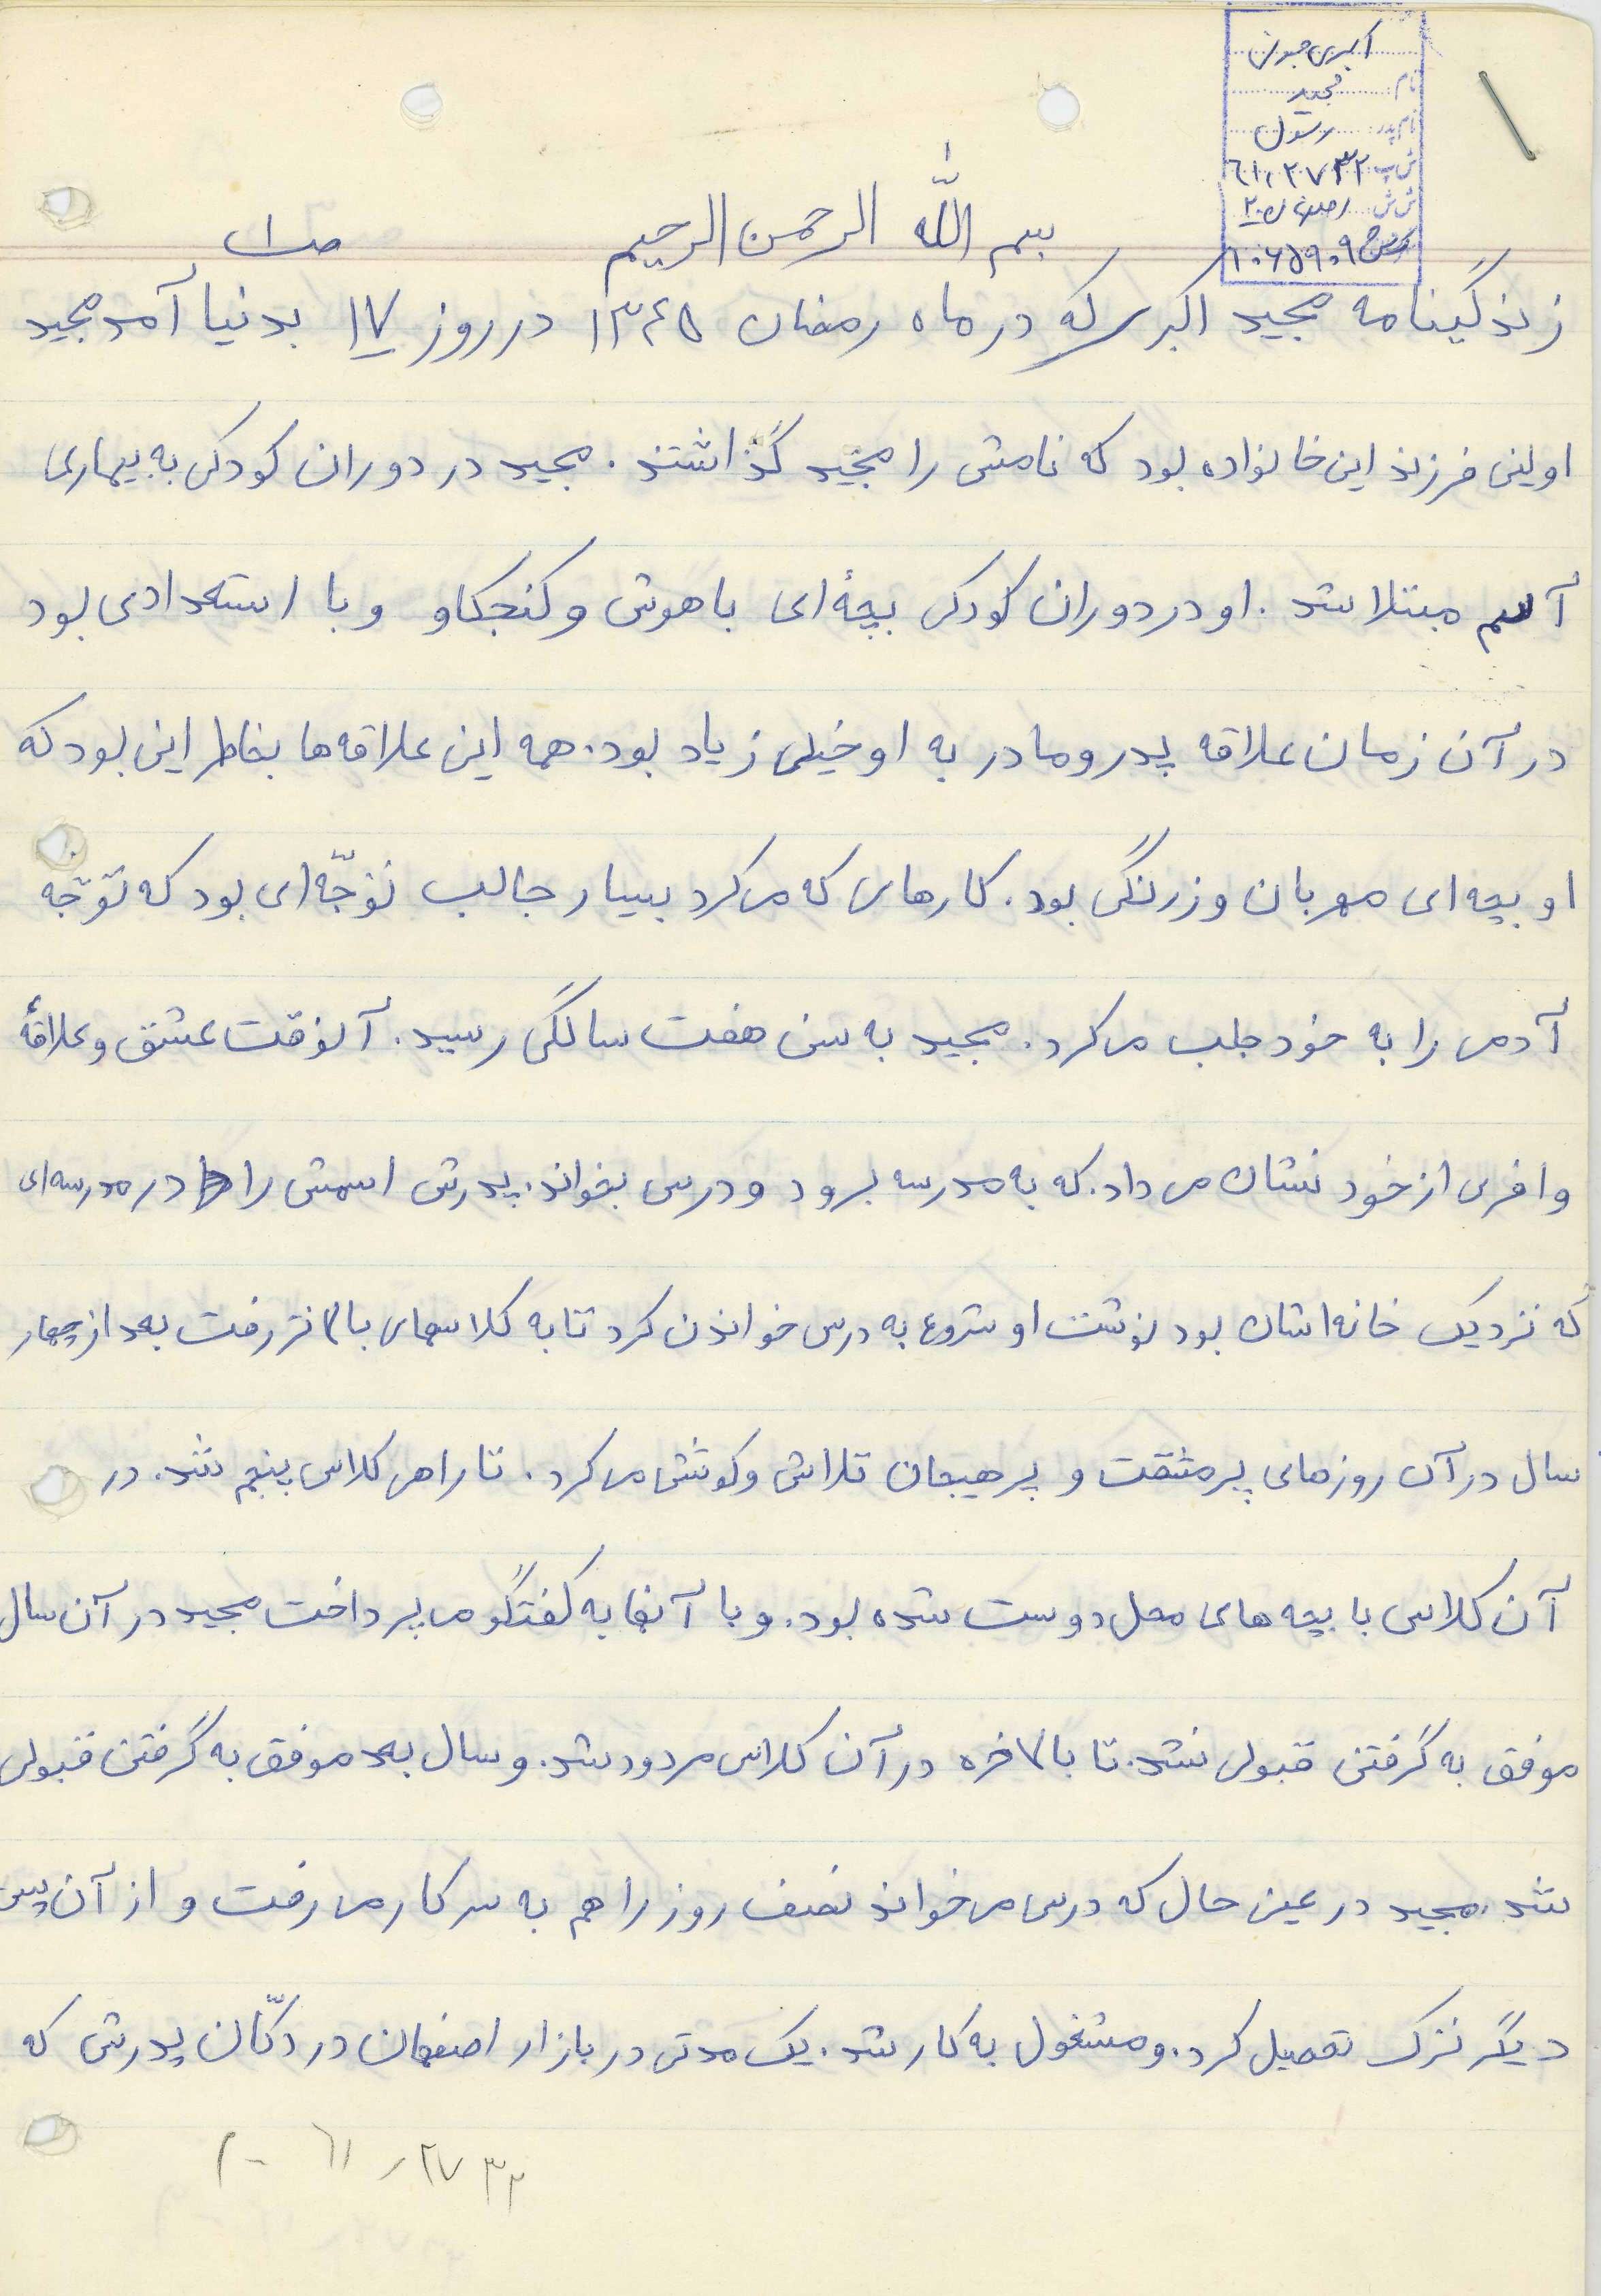 اکبری جونی
نام مجید
نام پدر رسول
ش پ ۶۱۰۲۷۳۲
ش ش
۱۰۶۵۹۰۹
بسم الله الرحمن الرحیم
ص۱
زندگینامه مجید اکبری که در ماه رمضان ۱۳۴۵ در روز ۱۷ بدنیا آمد مجید
اولین فرزند این خانواده بود که نامش را مجید گذاشتند. مجید در دوران کودکی به بیماری
آسم مبتلا شد. او در دوران کودکی بچۀ ای باهوش و کنجکاو و با استعدادی بود
در آن زمان علاقه پدر و مادر به او خیلی زیاد بود. همه این علاقه ها بخاطر این بود که
او بچه ای مهربان و زرنگی بود. کارهای که می کرد بسیار جالب توجّه ای بود که توجّه
آدمی را به خود جلب می کرد. مجید به سن هفت سالگی رسید. آنوقت عشق و علاقۀ
وافری از خود نشان می داد. که به مدرسه برود و درس بخواند. پدرش اسمش را در مدرسه ای
که نزدیک خانه اشان بود نوشت او شروع به درس خواندن کرد تا به کلاسهای بالاتر رفت بعد از چهار
سال در آن روزهای پر مشقت و پر هیجان تلاش و کوشش می کرد. تا راهی کلاس پنجم شد. در
آن کلاس با بچه های محل دوست شده بود. و با آنها به گفتگو می پرداخت مجید در آن سال
موفق به گرفتن قبولی نشد. تا بالاخره در آن کلاس مردود شد. و سال بعد موفق به گرفتن قبولی
شد. مجید در عین حال که درس می خواند نصف روز را هم به سر کار می رفت و از آن پس
دیگر ترک تحصیل کرد. و مشغول به کار شد. یک مدتی در بازار اصفهان در دکّان پدرش که